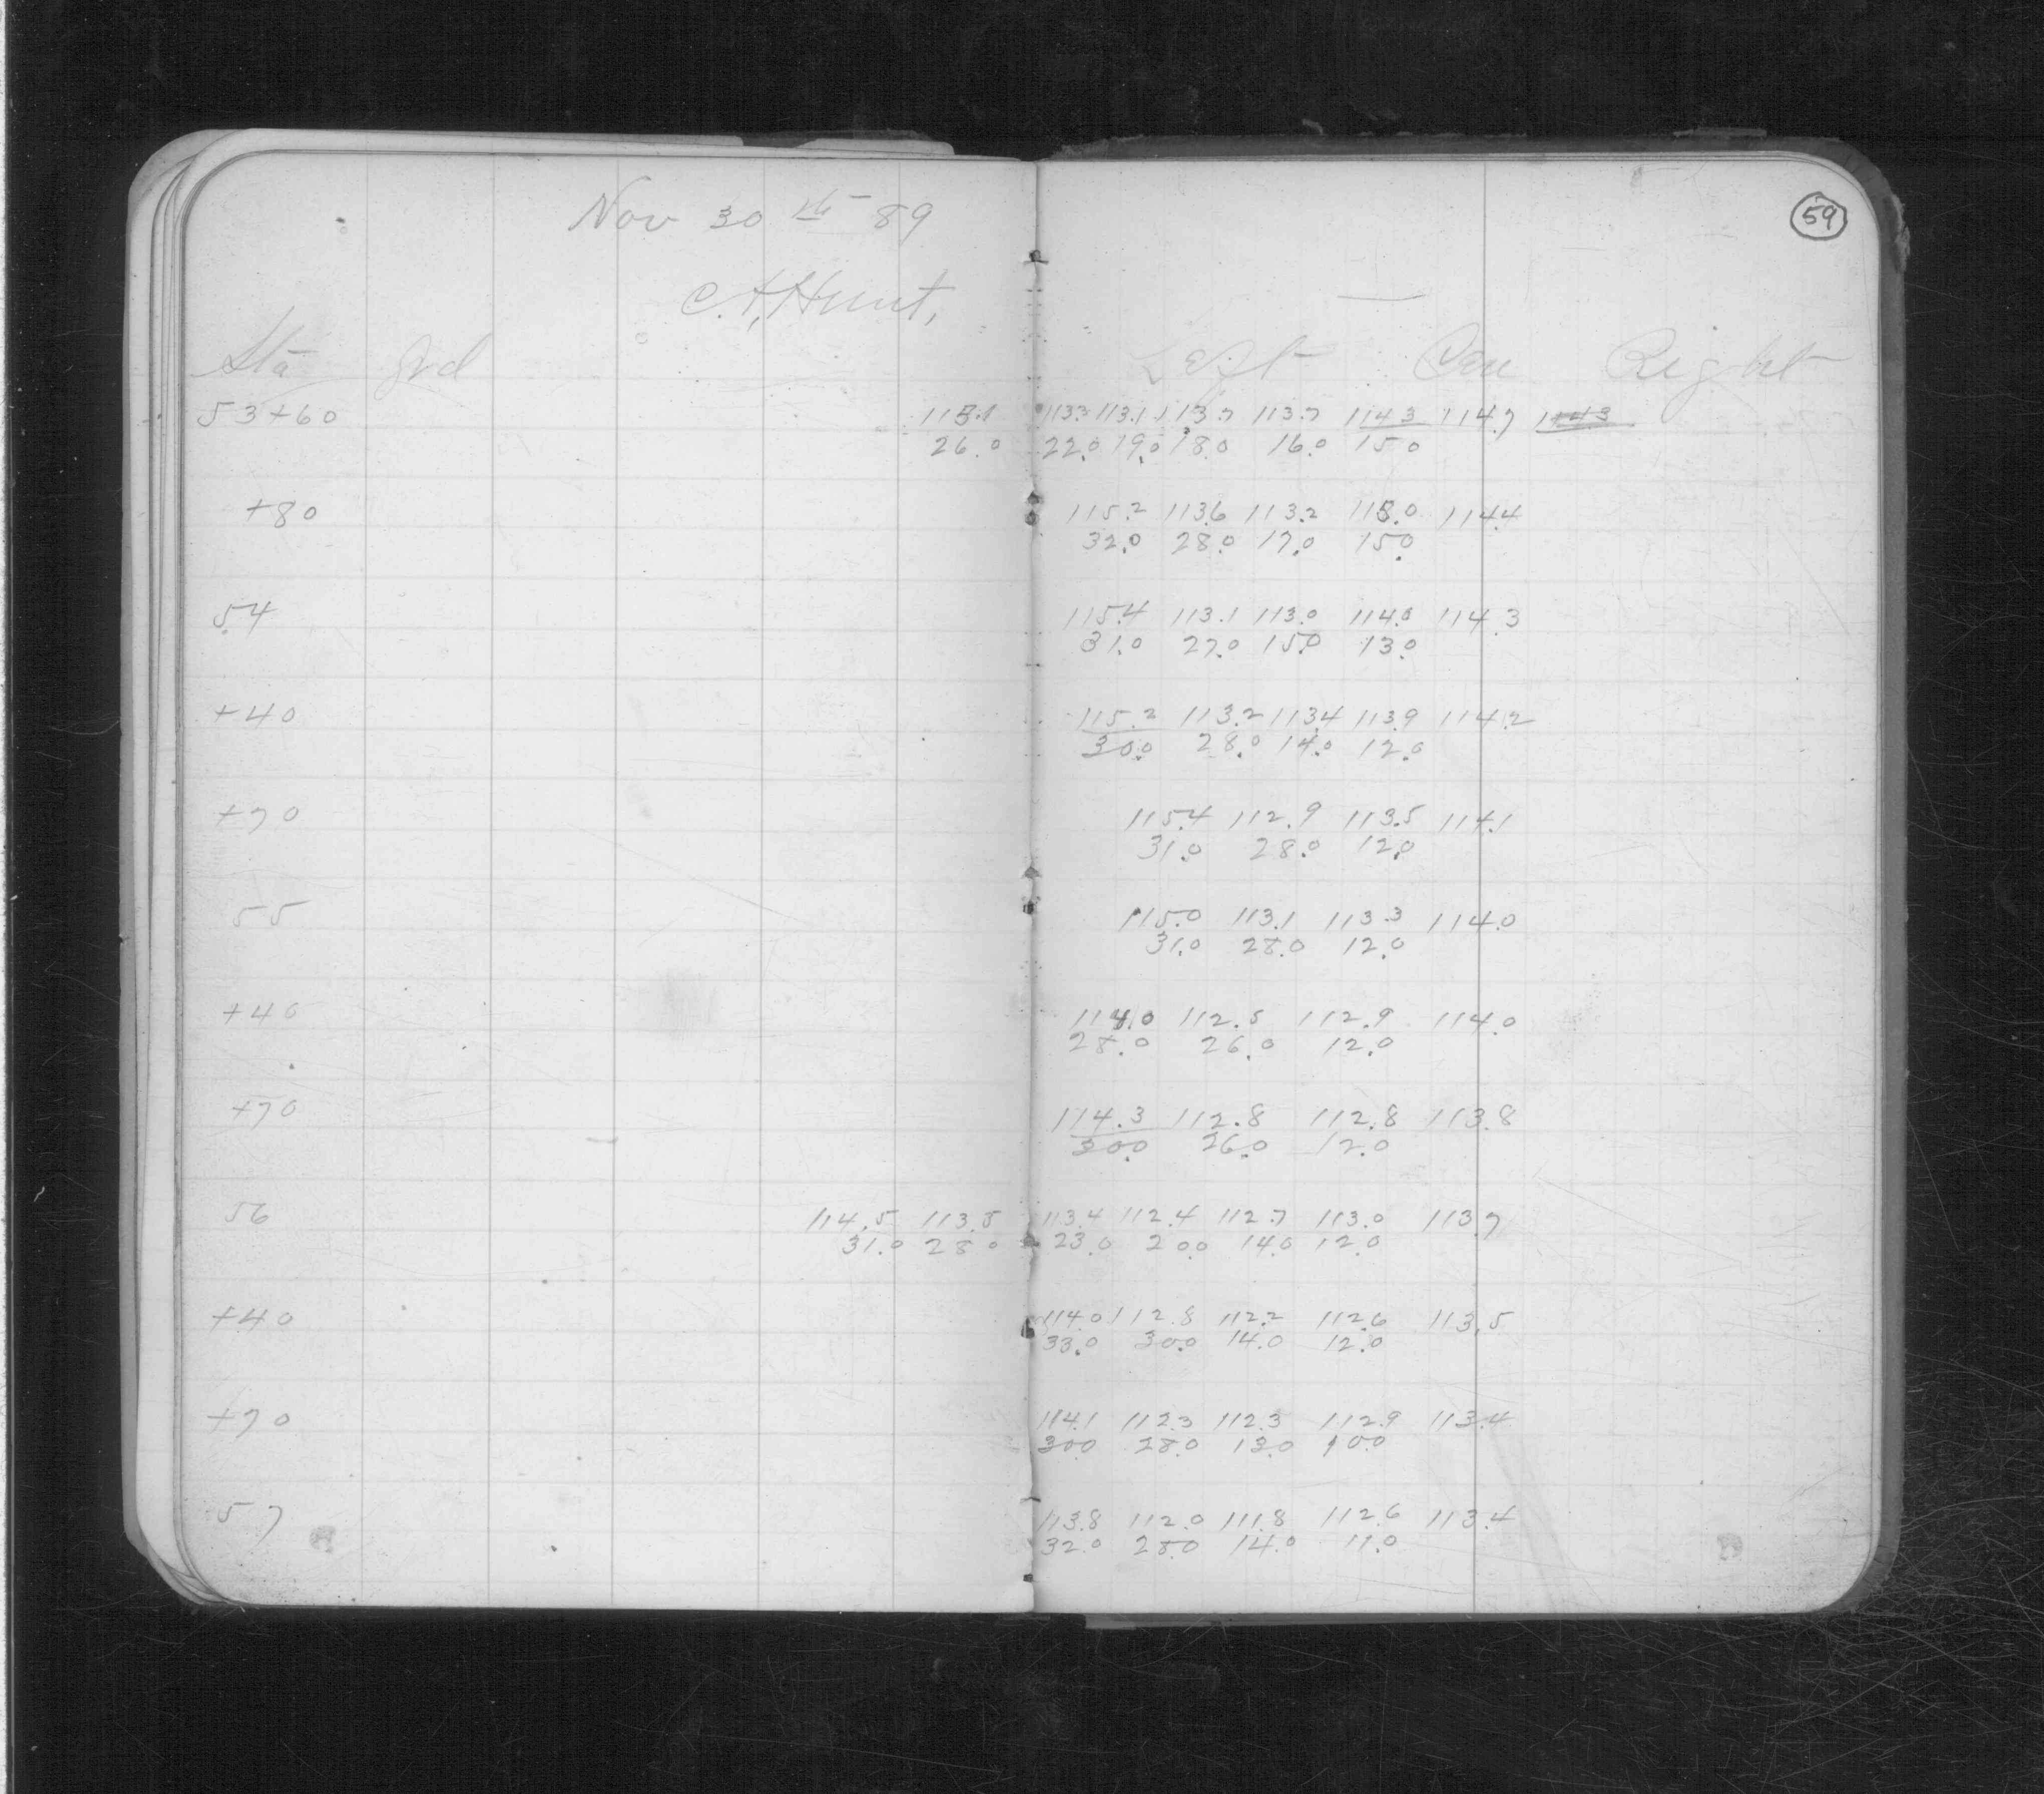 59
Nov 30th 89
C.A. Hunt,
Sta Grd Left Cen Right
53+60 115.1 113.3 113.1 113.7 113.7 114.3 114.7 114.3
26.0 22.0 19.0 18.0 16.0 15.0
+80 115.2 113.6 113.2 113.0 114.4
32.0 28.0 17.0 15.0
54 115.4 113.1 113.0 114.0 114.3
31.0 27.0 15.0 13.0
+40 115.2 113.2 113.4 113.9 114.2
30.0 28.0 14.0 12.0
+70 115.4 112.9 113.5 114.1
31.0 28.0 12.0
55 115.0 113.1 113.3 114.0
31.0 28.0 12.0
+40 114.0 112.5 112.9 114.0
28.0 26.0 12.0
+70 114.3 112.8 112.8 113.8
30.0 26.0 12.0
56 114.5 113.5 113.4 112.4 112.7 113.0 113.7
31.0 28.0 23.0 20.0 14.0 12.0
+40 114.0 112.8 112.2 112.6 113.5
33.0 30.0 14.0 12.0
+70 114.1 112.3 112.3 112.9 113.4
30.0 28.0 13.0 10.0
57 113.8 112.0 111.8 112.6 113.4
32.0 28.0 14.0 11.0